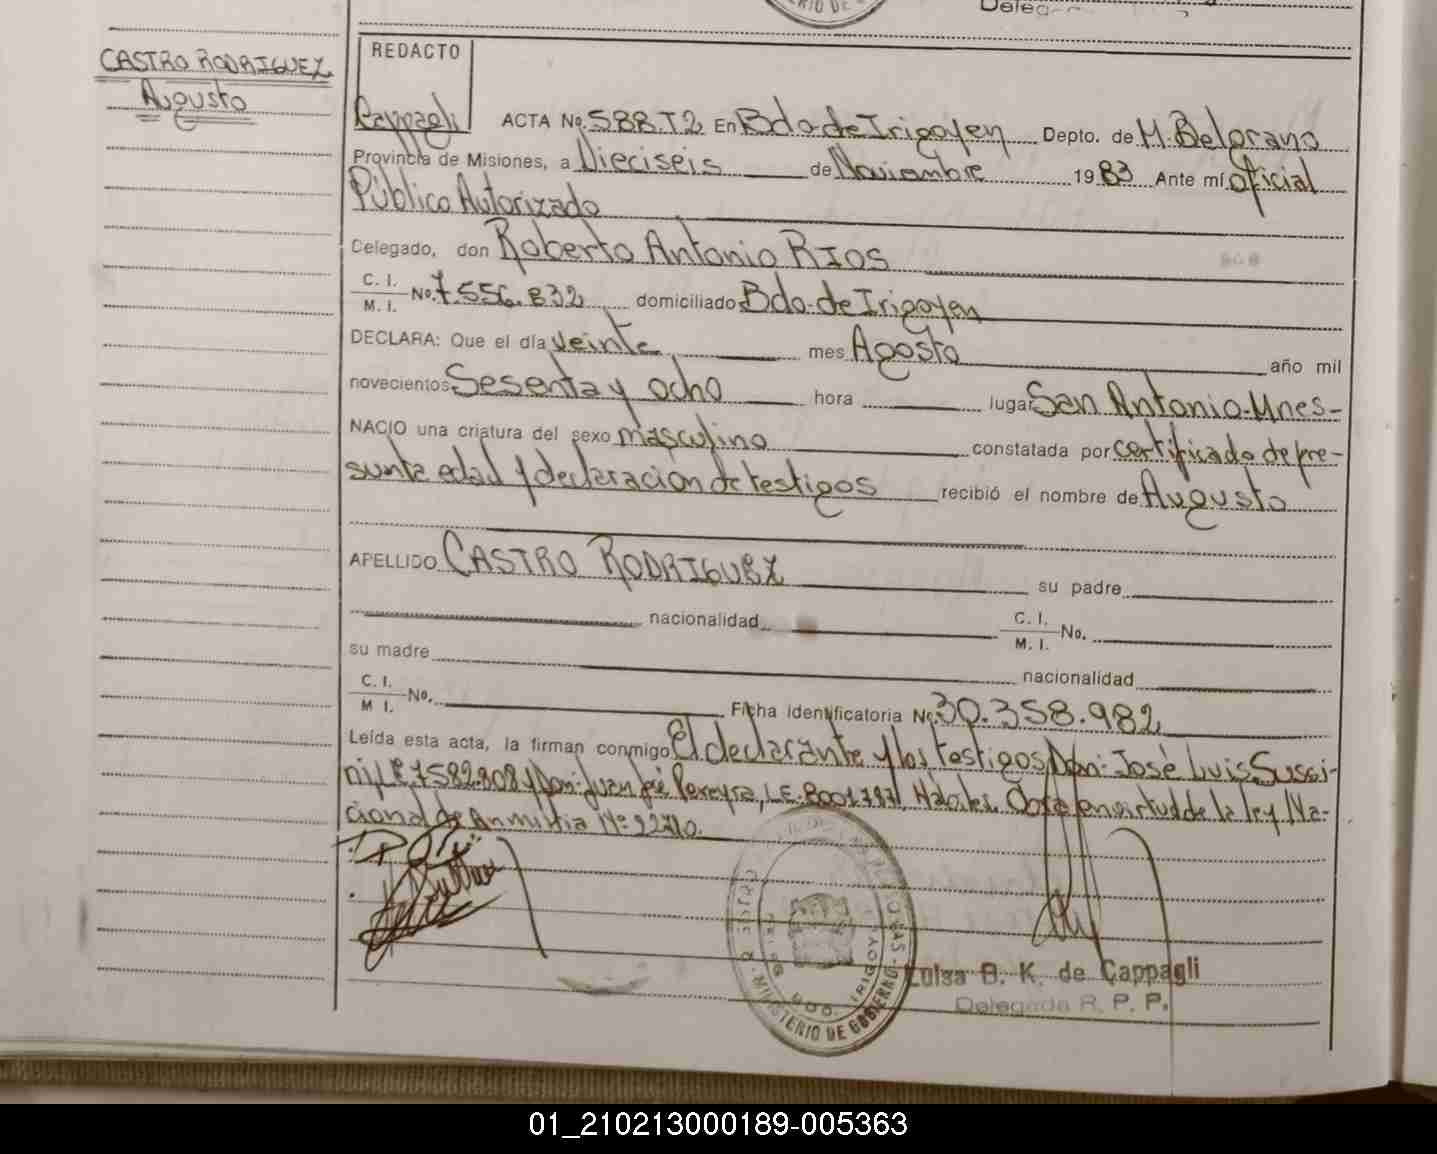 Deleg
CASTRO RODRIGUEZ
Augusto
REDACTO
Cappagli
ACTA No. 588.T2 En Bdo. de Irigoyen Depto. de M. Belgrano
Provincia de Misiones, a Dieciseis de Noviembre 1983 Ante mí oficial
Público Autorizado
Delegado, don Roberto Antonio RIOS
C. I.
M. I. No. 7.556.832 domiciliado Bdo. de Irigoyen
DECLARA: Que el día veinte mes Agosto año mil
novecientos Sesenta y ocho hora lugar San Antonio-Mnes-
NACIO una criatura del sexo masculino constatada por certificado de pre-
sunta edad y declaracion de testigos recibió el nombre de Augusto
APELLIDO CASTRO RODRIGUEZ su padre
nacionalidad C. I.
M. I. No.
su madre nacionalidad
C. I.
M I. No. Ficha identificatoria No. 30.358.982
Leída esta acta, la firman conmigo El declarante y los testigos Don: José Luis
L.E. 7582.808 y Don: Juan José Pereyra, L.E. Habiles. en virtud de la ley Na-
cional de Anmistia Nº 22710.
MINISTERIO DE GOBIERNO
BDO. IRIGOY
Luisa B. K. de Cappagli
Delegada R. P. P.
01_210213000189-005363